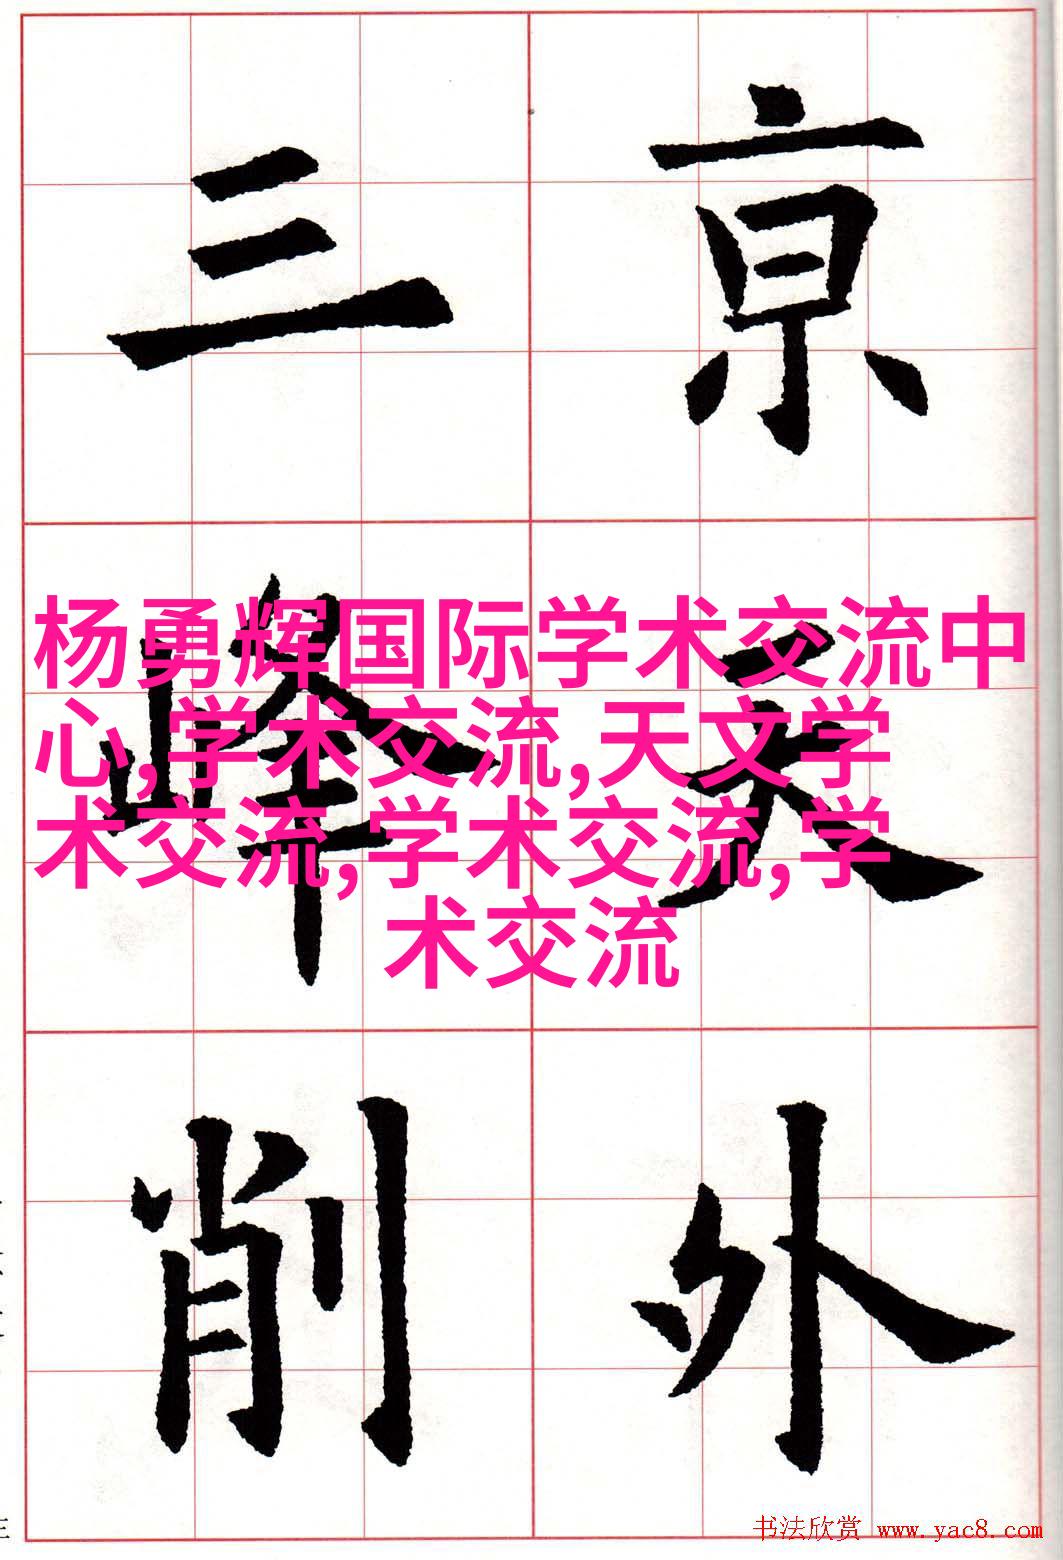 京
天
外
三
峰
削
杨勇辉国际学术交流中
心,学术交流,天文学
术交流,学术交流,学
术交流
书法欣赏 www.yac8.com